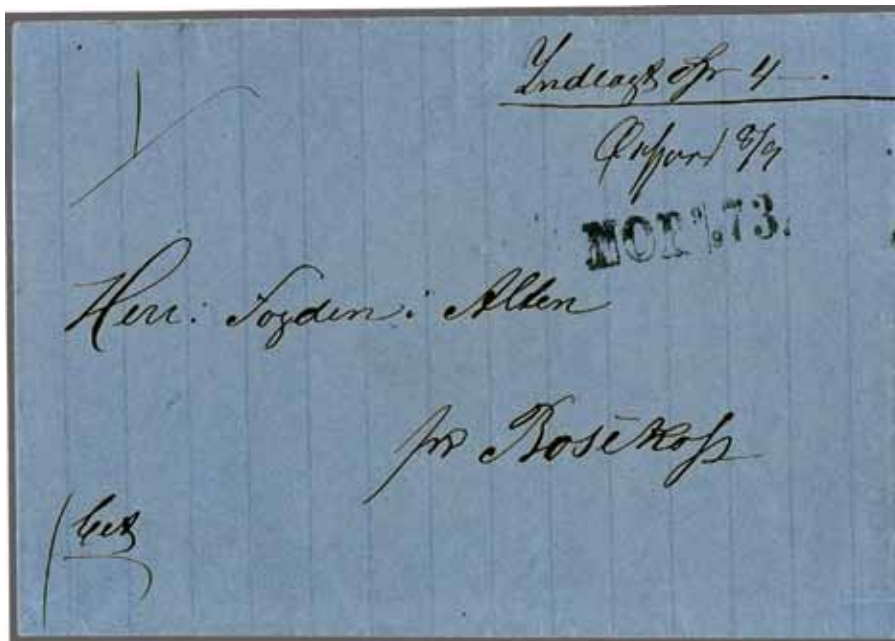 Indlagt Spr 4
Øxfjord 8/9
NOR
.73.
Herr: Fogden i Alten
pr Bosekop
bet